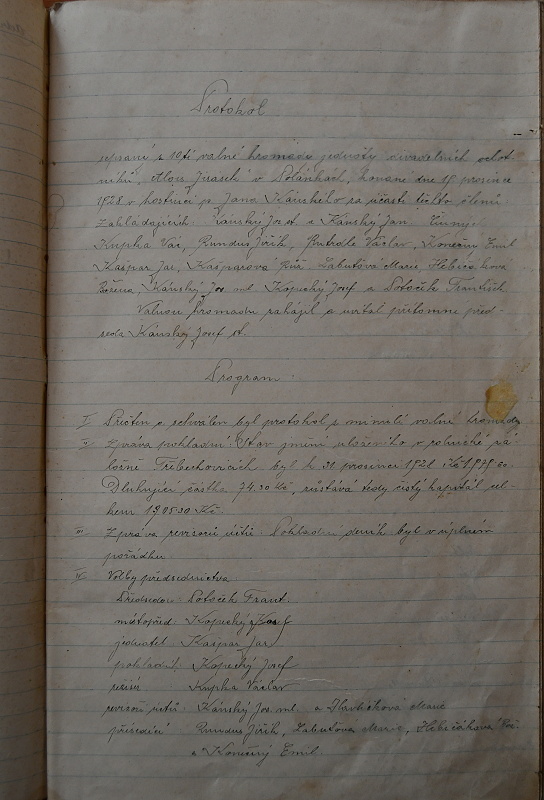 Protokol
sepsaní s 10tí valné hromady jednoty divadelních ochot-
níků, "Alois Jirásek" v Polánkách, konané dne 18 prosince
1928 v hostinci p. Jana Kánského za účasti těchto členů
Zakládajících: Kánský Jos. st. a Kánský Jan Činných:
Knpka Vác, Rundus Jiřík, Václav, Konečný Emil
Kašpar Jar, Kašparová Růž. Labuťová Marie, Hebčáková
Božena, Kánský Jos ml. Kopecký Josef a Potoček František
Valnou hromadu zahájil a uvítal přítomné před-
seda Kánský Josef st.
Program
I Přečten a schválen byl protokol z minulé valné hromady
II Zpráva pokladní: Stav jmění uloženého v rolnické zá-
ložně Třebechovicích byl k 31 prosinci 1928 Kč
Dlužnjící částka 74.30 Kč, zůstává tedy čistý kapitál cel-
kem Kč.
III Zpráva revisorů účtů: Pokladní deník byl v úplném
pořádku.
IV Volby předsednictva:
Předseda: Potoček Frant.
místopřed: Kopecký Josef
jednatel Kašpar Jar
pokladní: Kopecký Josef
režisér Knpka Václav
revisoři účtů: Kánský Jos. ml. a Marie
přísedící Rundus Jiřík, Labuťová Marie, Hebčáková Bož.
a Konečný Emil